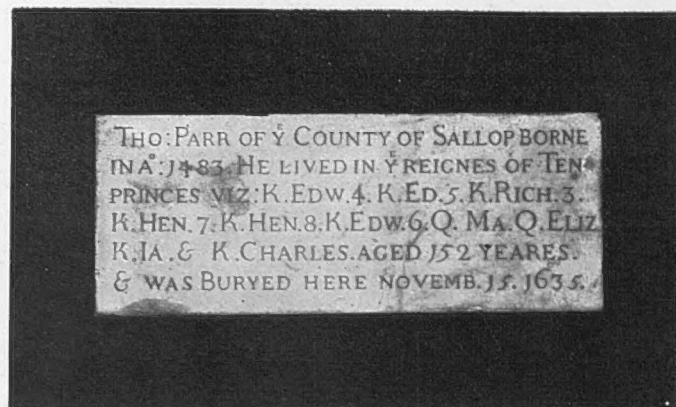 THO: PARR OF Yᴱ COUNTY OF SALLOP BORNE
IN Aᵒ: 1483. HE LIVED IN Yᴱ REIGNES OF TEN
PRINCES VIZ: K. EDW. 4. K. ED. 5. K. RICH. 3.
K. HEN. 7. K. HEN. 8. K. EDW. 6. Q. MA. Q. ELIZ
K. IA. & K. CHARLES. AGED 152 YEARES.
& WAS BURYED HERE NOVEMB. 15. 1635.